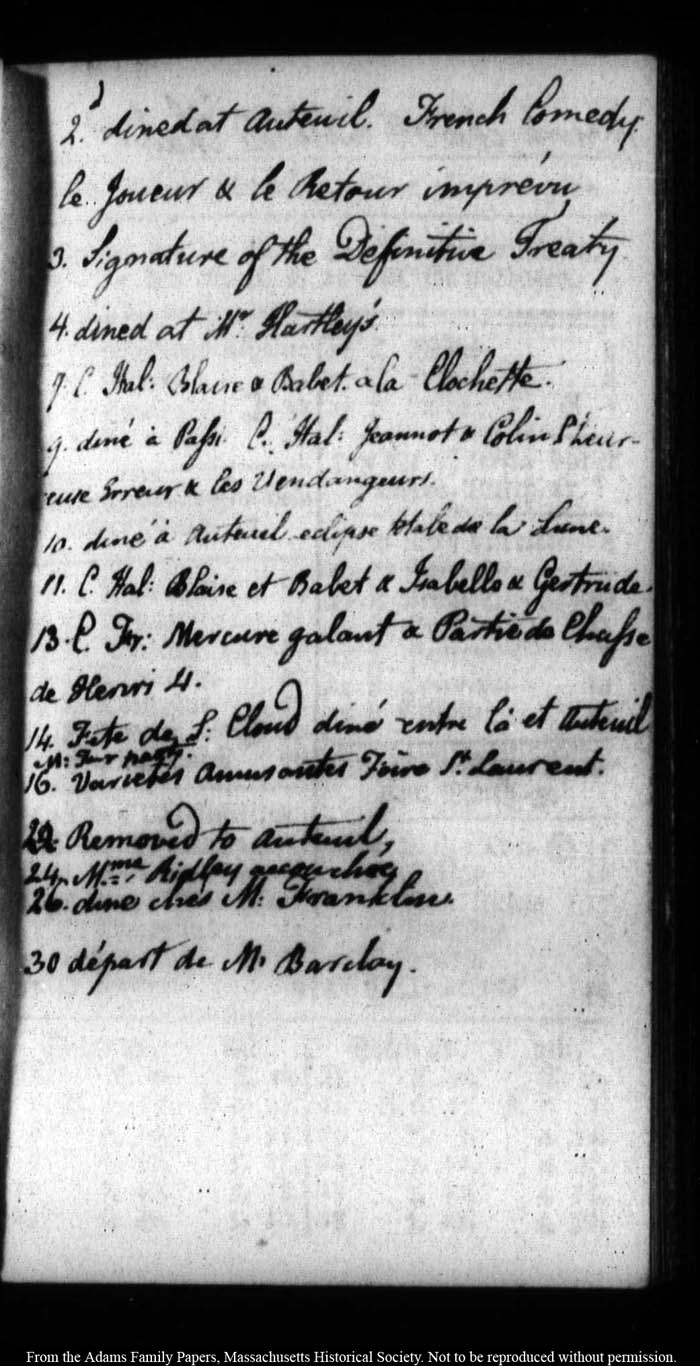 2.d dined at Auteuil. French Comedy.
le Joueur & le Retour imprévu
3. Signature of the Definitive Treaty
4. dined at Mr. Hartley's
C. Ital: Blaise & Babet. a la Clochette.
9. diné à Passi. C. Ital: Jeannot & Colin L'heur-
euse Erreur & les Vendangeurs.
10. diné à Auteuil eclipse totale de la Lune.
11. C. Ital: Blaise et Babet & Isabelle & Gertrude.
13. C. Fr: Mercure galant & Partie de Chasse
de Henri 4.
14. Fete de St: Cloud diné entre là et Auteuil
M:
16. Varietés Amusantes Foire St. Laurent.
Removed to Auteuil,
24. Mme. Ridley accouchée
26. diné chés M: Franklin.
30 départ de Mr Barclay.
From the Adams Family Papers, Massachusetts Historical Society. Not to be reproduced without permission.